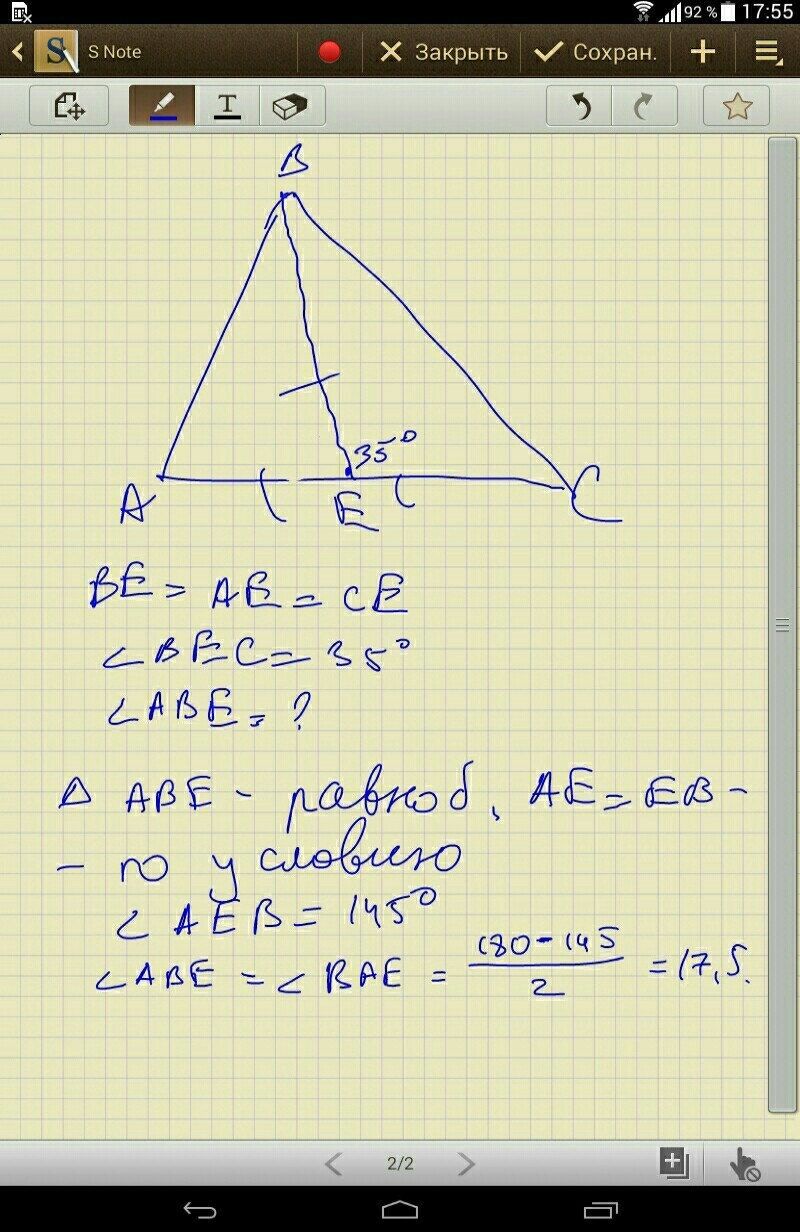 92 % 17:55
S Note Закрыть Сохран.
T
B
35°
A E C
BE = AE = CE
∠BEC = 35°
∠ABE = ?
Δ ABE - равноб, AE = EB -
- по условию
∠AEB = 145°
∠ABE = ∠BAE = (180-145)/2 = 17,5.
2/2